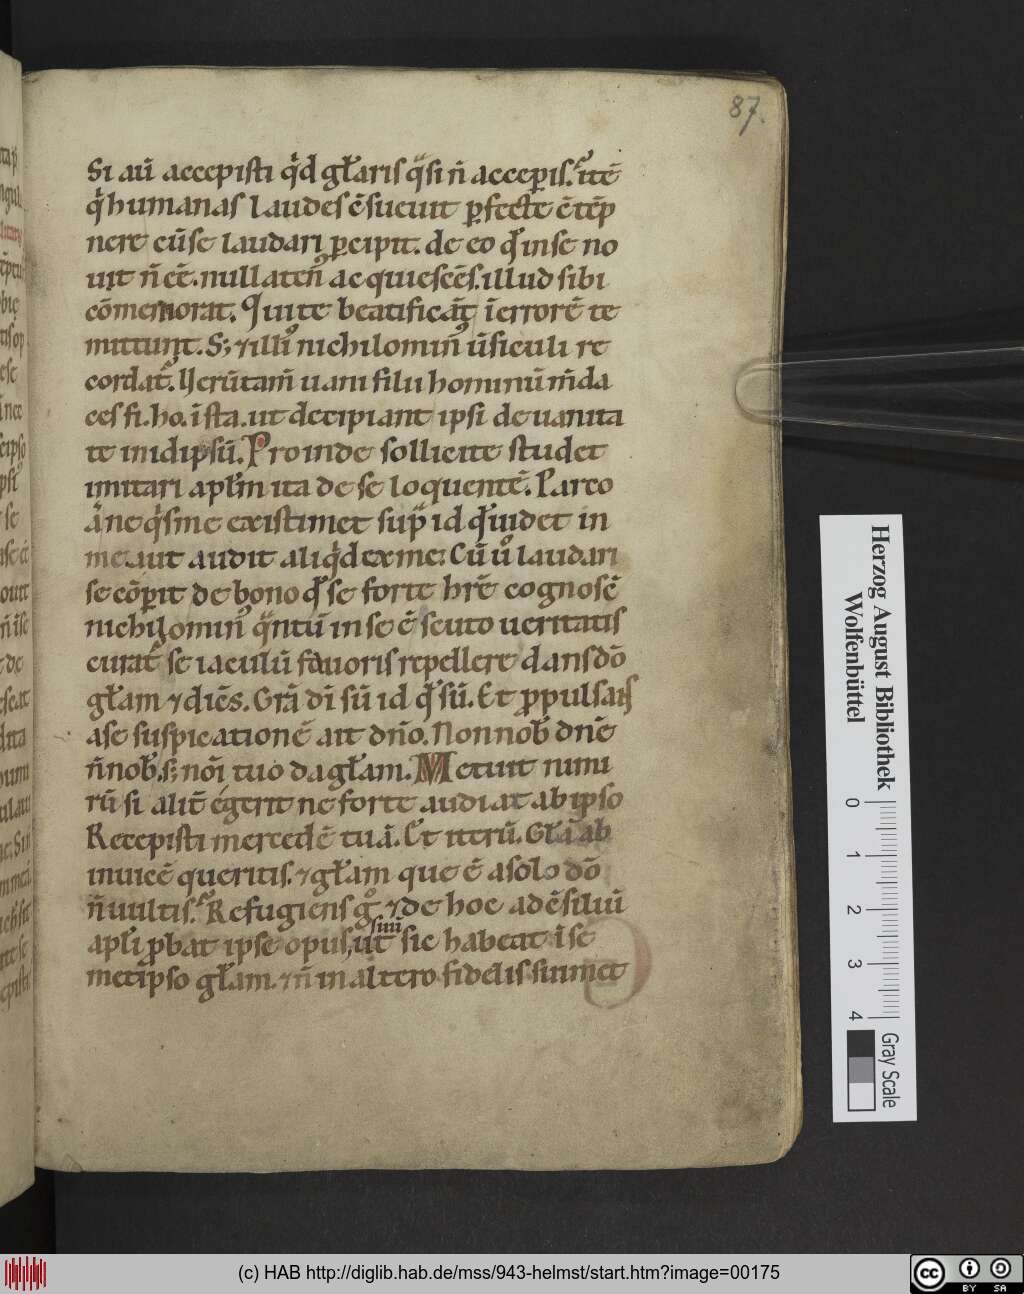 87.
Si aū accepisti qͥd głaris qͣsi n̄ acceperis. itē
qͥ humanas laudes ē sueuit ꝑfecte ētēp
nere cū se laudari ꝑcipit. de eo qđ in se no
uit n̄ eē. nullatenꝰ acquiescēs. illud sibi
cōmemorat. Qui te beatificāt ī errorē te
mittunt. S; ⁊ illiꝰ nichilominꝰ ūsiculi re
cordatᷣ. Verūtam̄ uani filii hominū m̄da
ces fi. ho. ī sta. ut decipiant ipsi de uanita
te in idipsū. Proinde sollicite studet
imitari apłm ita de se loquentē. Parco
āne qͥs me existimet sup̄ id qđ uidet in
me. aut audit aliqͥd ex me: Cū uͦ laudari
se cōꝑit de bono qđ se forte hr̄e cognoscē
nichilominꝰ qͣntū in se ē scuto ueritatis
curat se iaculū fauoris repellere dans dō
głam ⁊ dicēs. Grā dī sū id qđ sū. Et ꝓpulsans
a se suspicationē ait dn̄o. Non nob̄ dn̄e
n̄ nob̄. s; nōi tuo da głam. Metuit nimi
rū si alit̄ egerit ne forte audiat ab ipso
Recepisti mercedē tuā. Et iterū. Głā ab
inuicē queritis. ⁊ głam que ē a solo dō
n̄ uultis. Refugiens gͦ. ⁊ de hoc ad ēsiliū
apłi ꝓbat ipse opus suū
ut sic habeat ī se
metipso głam. ⁊ n̄ in altero fidelis sui met
Herzog August Bibliothek
Wolfenbüttel
0 1 2 3 4
Gray Scale
(c) HAB http://diglib.hab.de/mss/943-helmst/start.htm?image=00175
cc BY SA